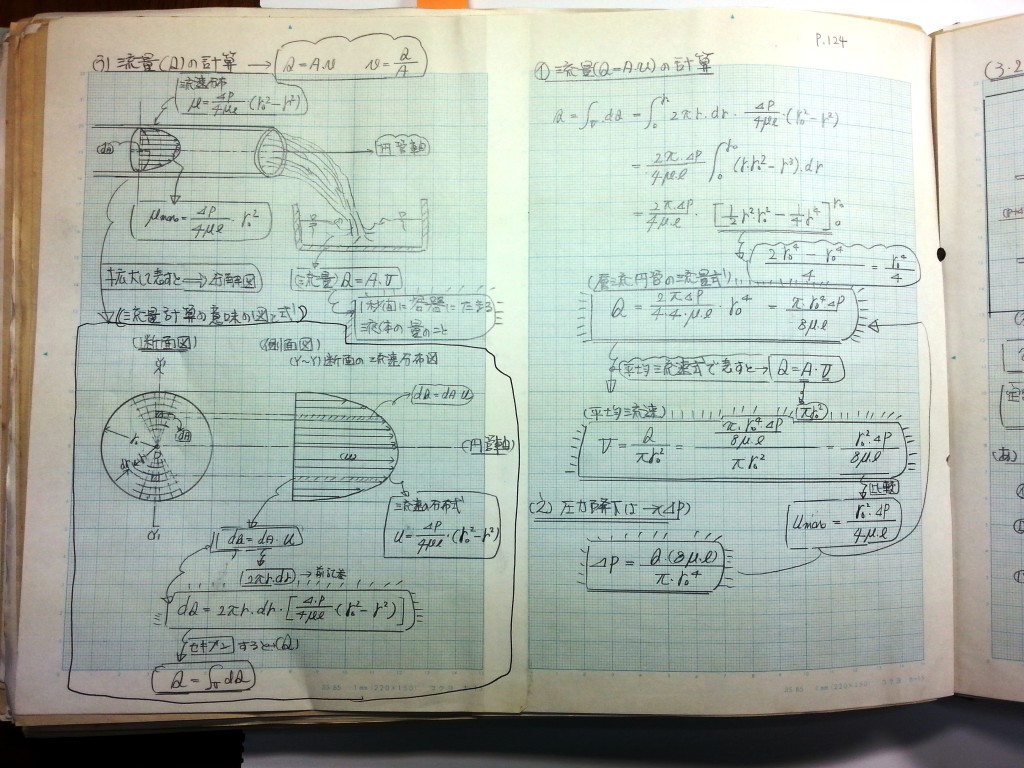 (う) 流量(Q)の計算 → Q=A.v v=Q/A
流速分布
u=ΔP/4μl・(r₀²-r²)
dA
円管軸
umax=ΔP/4μl・r₀²
拡大して表すと⇒右解図
(流量) Q=A.V
1秒間に容器にたまる
流体の量のこと
(流量計算の意味の図と式)
(断面図)
(側面図)
(Y~Y)断面の流速分布図
dQ=dA.u
r₀
dA
dr
(u)
(円管軸)
流速の分布式
u=ΔP/4μl・(r₀²-r²)
dQ=dA.u
2πr.dr →前記差
dQ=2πr.dr・[ΔP/4μl(r₀²-r²)]
セキブンすると(Q)
Q=∫dQ
P.124
① 流量(Q=A.v)の計算
Q=∫dQ=∫₀ʳ 2πr.dr.ΔP/4μl・(r₀²-r²)
=2π.ΔP/4μl ∫₀^r₀ (r.r₀²-r³).dr
=2π.ΔP/4μl・[1/2 r²r₀²-1/4 r⁴]₀^r₀
2r₀⁴-r₀⁴/4=r₀⁴/4
(層流円管の流量式)
Q=2π.ΔP/4.4.μ.l・r₀⁴=π.r₀⁴.ΔP/8μ.l
平均流速式で表すと→ Q=A.V
πr₀²
(平均流速)
V=Q/πr₀²=π.r₀⁴.ΔP/8μ.l/πr₀²=r₀².ΔP/8μ.l
比較
umax=r₀².ΔP/4μ.l
(え) 圧力降下(ΔP)
ΔP=Q.(8μ.l)/π.r₀⁴
(3.2